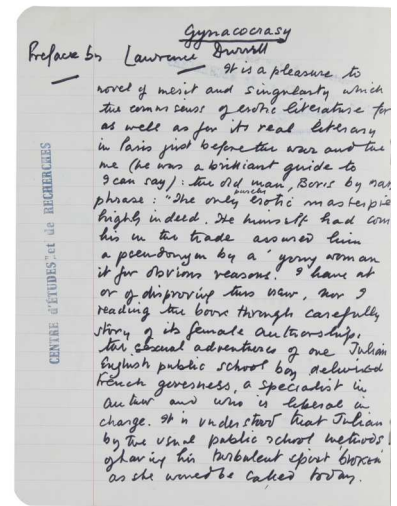 Gynacocrasy
Preface by Lawrence Durrell
It is a pleasure to
novel of merit and singularity which
the connoisseurs of erotic literature for
as well as for its real literary
in Paris just before the war and the
me (he was a brilliant guide to
I can say): the old man, Boris by nam
phrase: "The only erotic masterpie
highly indeed. He himself had com
his in the trade assured him
a pseudonym by a young woman
it for obvious reasons. I have at
or of disproving this view, nor I
reading the book through carefully
story of its female authorship.
the sexual adventures of one Julian
English public school boy delivered
French governess, a specialist in
and who is liberal in
charge. It is understood that Julian
by the usual public school methods
of having his turbulent spirit broken
as she would be called today.
CENTRE d'ÉTUDES et de RECHERCHES